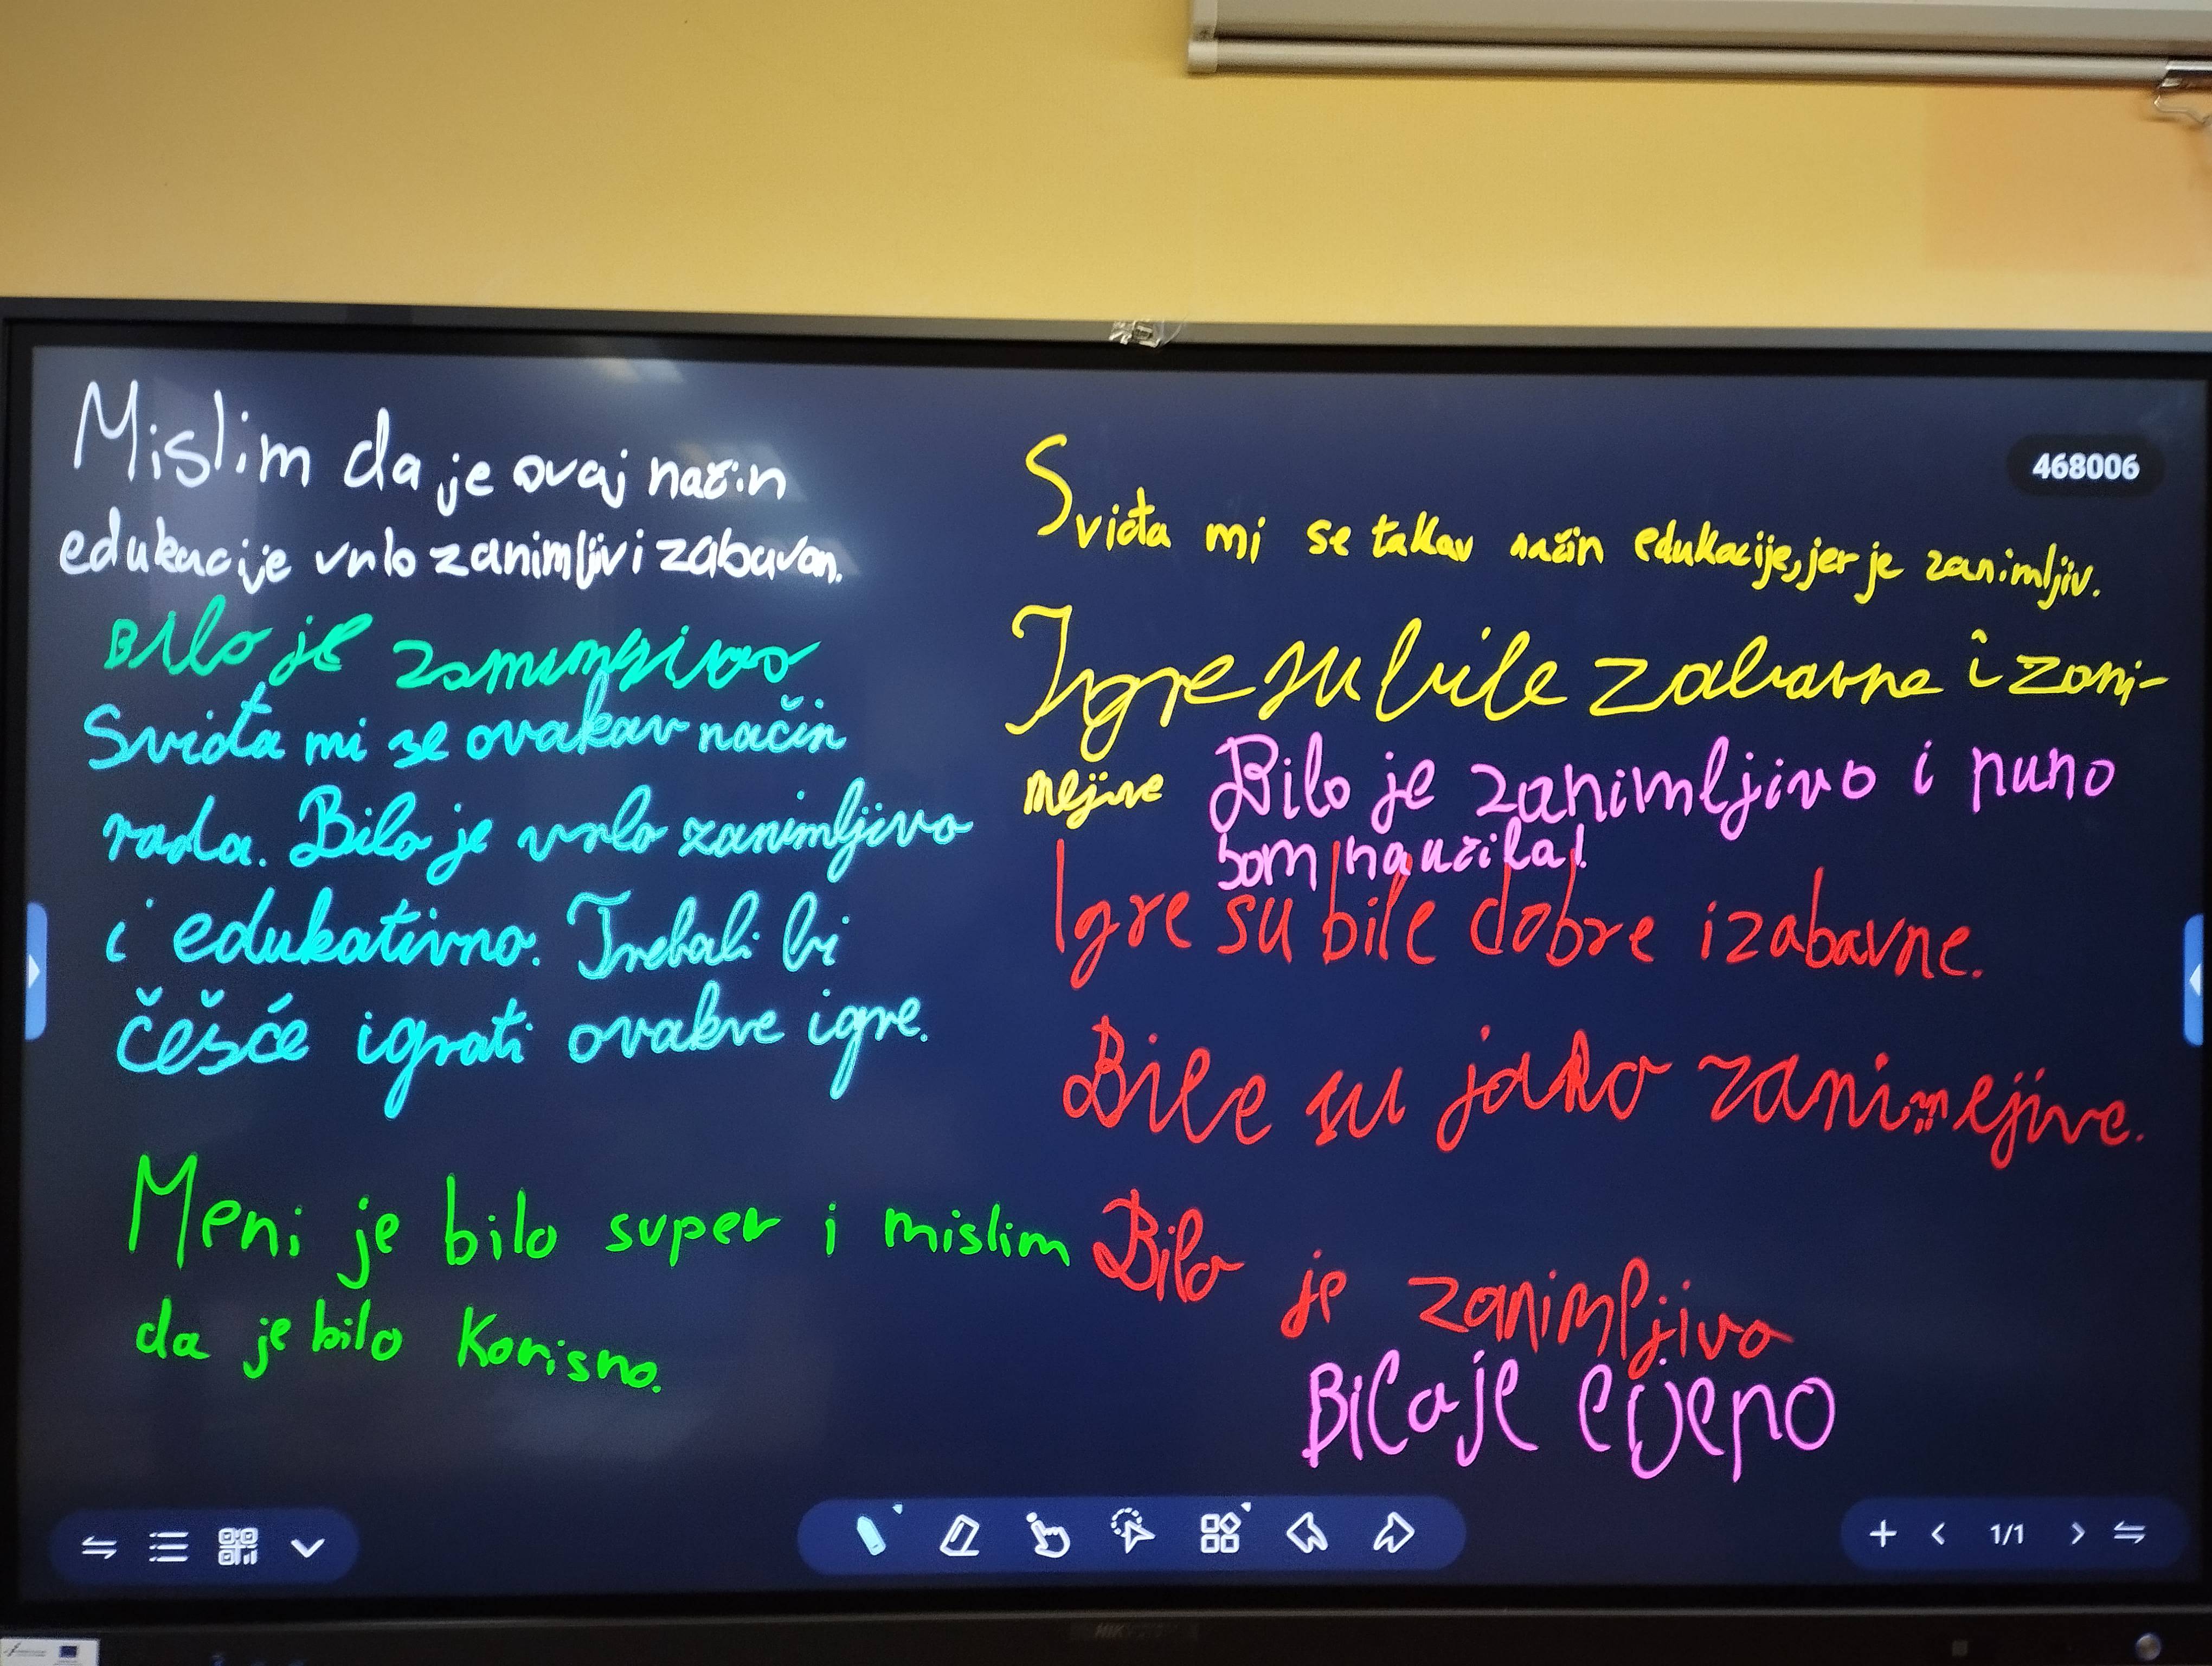 Mislim da je ovaj način
edukacije vrlo zanimljiv i zabavan.
Bilo je
Sviđa mi se ovakav način
rada. Bilo je vrlo zanimljivo
i edukativno. Trebali bi
češće igrati ovakve igre.
Meni je bilo super i mislim
da je bilo korisno.
468006
Sviđa mi se takav način edukacije, jer je zanimljiv.
Igre su bile zabavne i zani-
mljive
Bilo je zanimljivo i puno
som naučila!
Igre su bile dobre i zabavne.
Bile su jako zanimljive.
Bilo je zanimljivo
Bilo je lijepo
1/1